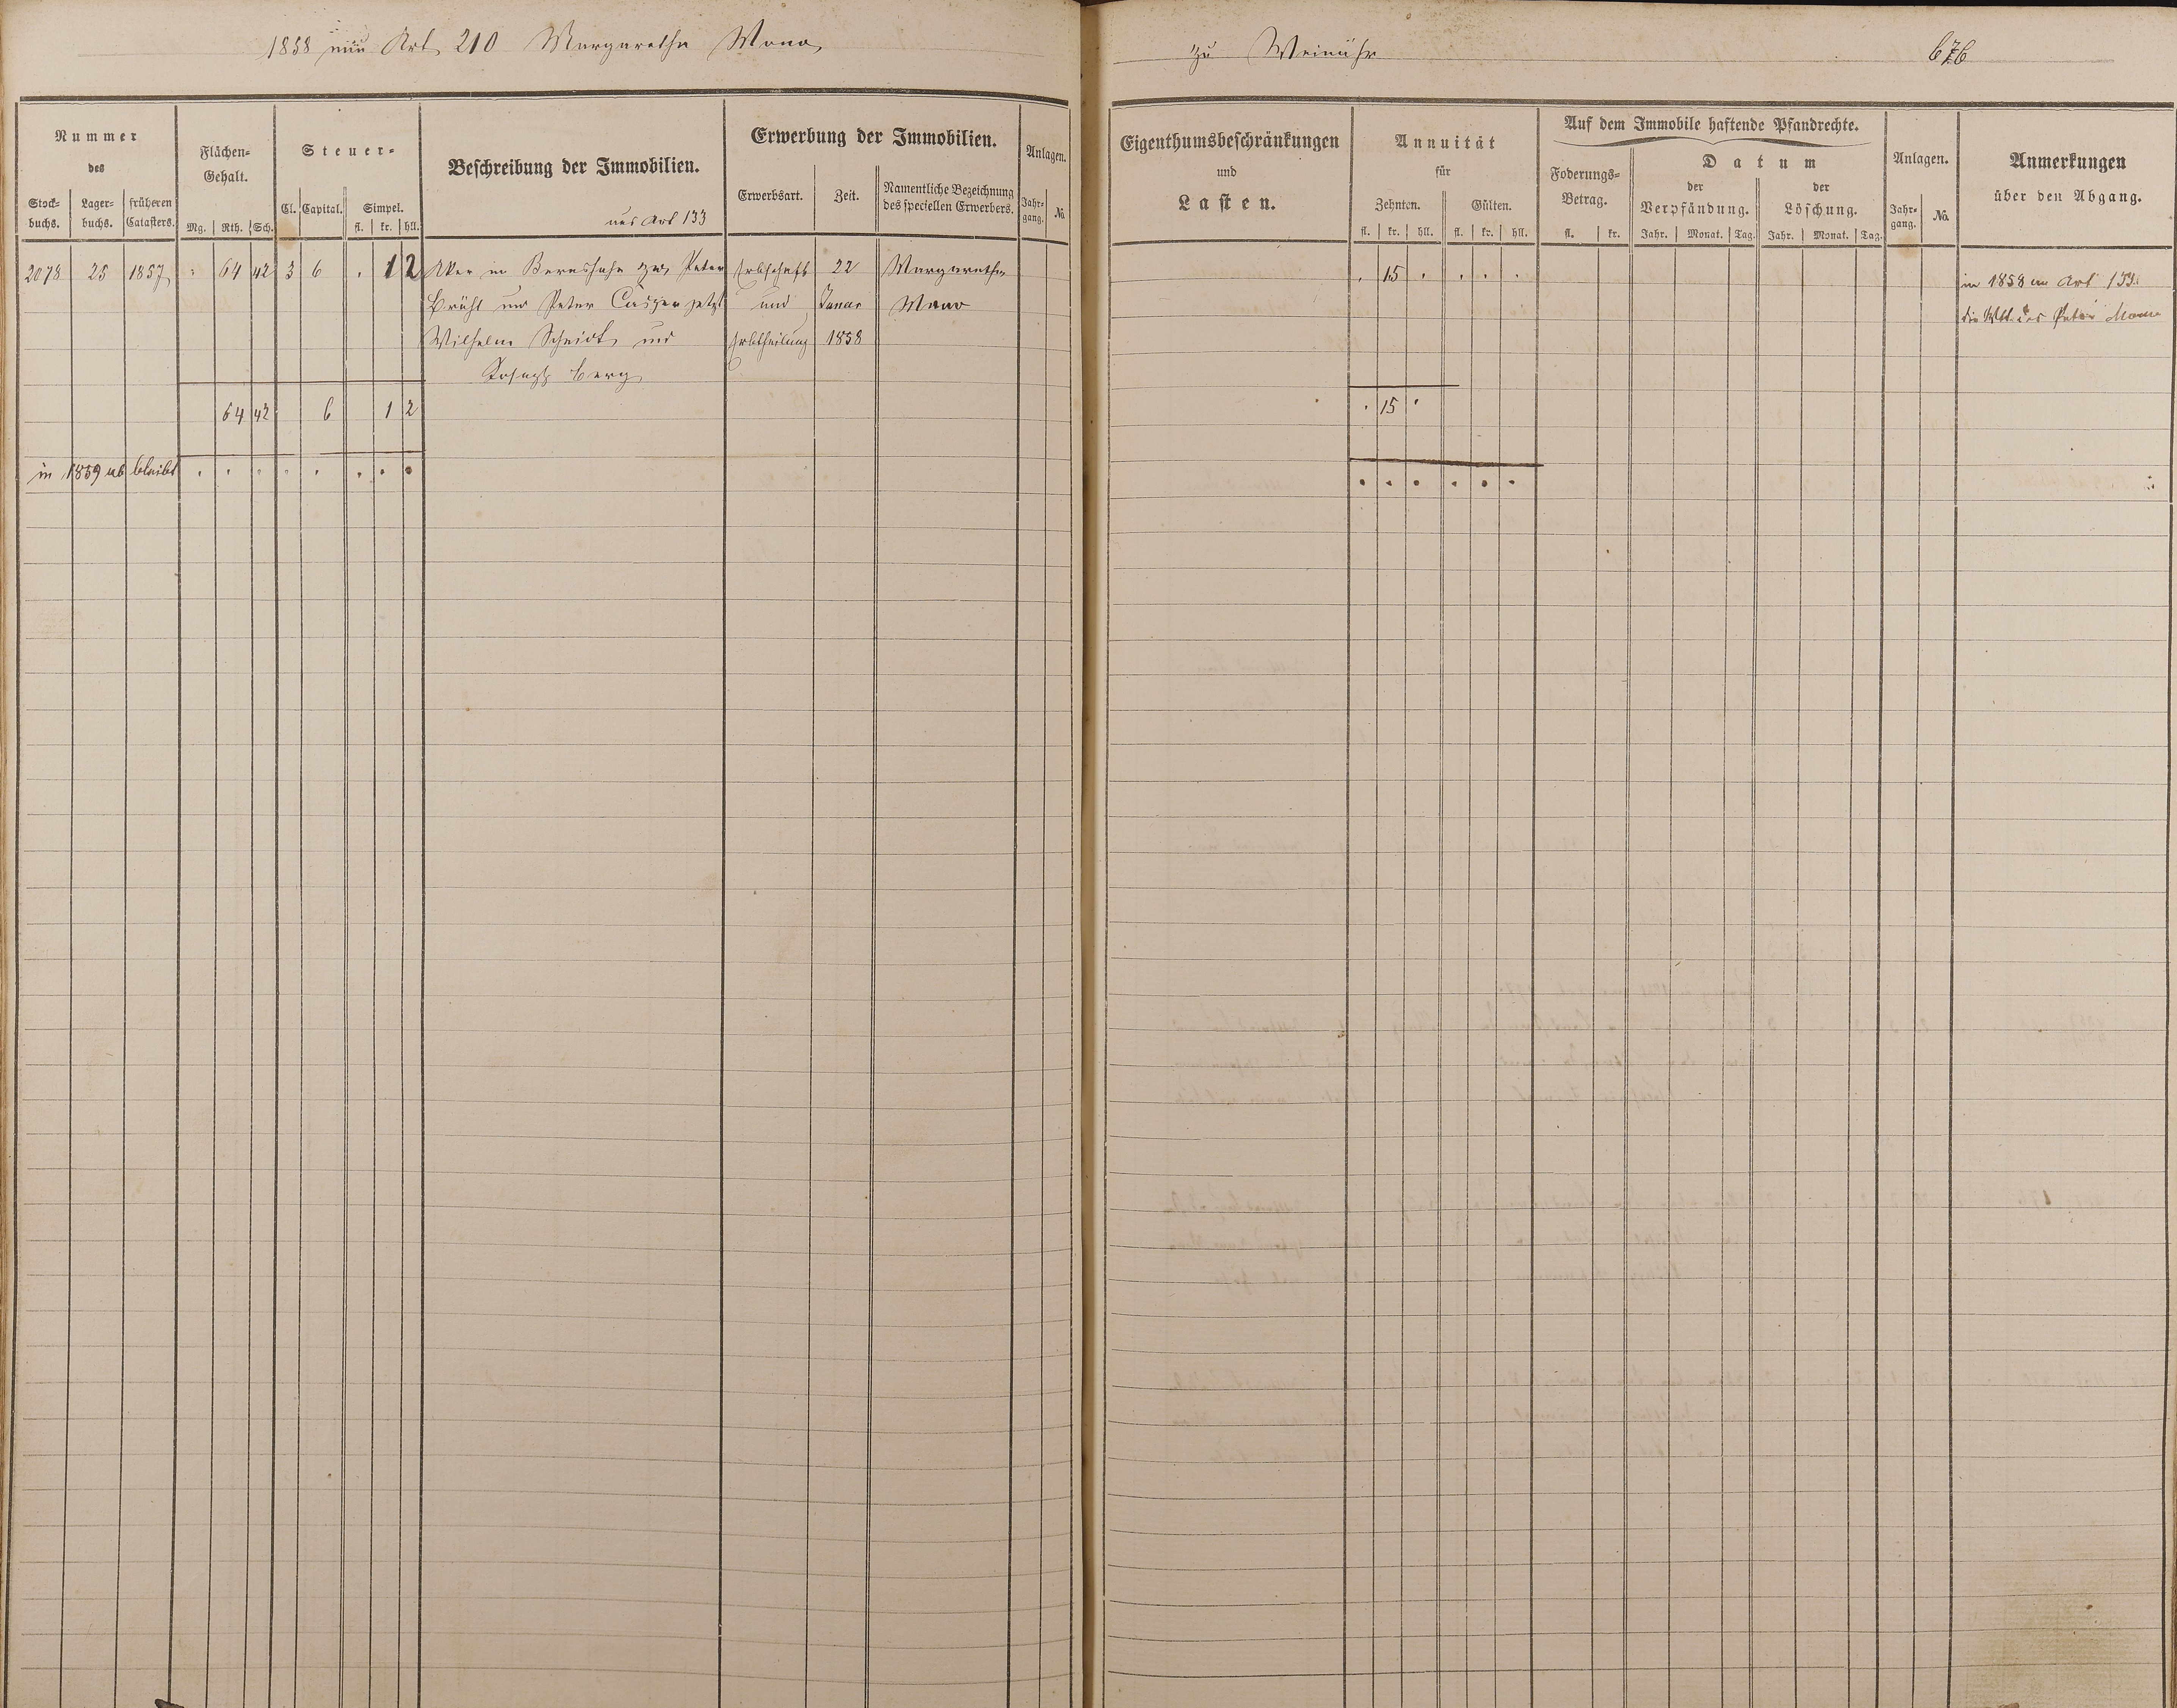 1858 neu Art 210 Margaretha Mono
zu Weinähr 676
Nummer
des
Stock-buchs. Lager-buchs. früheren Catasters.
Flächen-Gehalt.
Mg. Rth. Sch.
Steuer-
Cl. Capital. Simpel.
fl. kr. hll.
Beschreibung der Immobilien.
aus Art 133
Erwerbung der Immobilien.
Erwerbsart. Zeit. Namentliche Bezeichnung des speciellen Erwerbers.
Anlagen.
Jahr-gang. No.
Eigenthumsbeschränkungen
und
Lasten.
Annuität
für
Zehnten. Gülten.
fl. kr. hll. fl. kr. hll.
Auf dem Immobile haftende Pfandrechte.
Foderungs-Betrag.
fl. kr.
Datum
der Verpfändung. der Löschung.
Jahr. Monat. Tag. Jahr. Monat. Tag.
Anlagen.
Jahr-gang. No.
Anmerkungen
über den Abgang.
2078 25 1857 . 64 42 3 6 . 1 2 Aker in zw. Peter Erbschaft 22 Margaretha . 15 . . . . in 1858 an Art 133
Brühl und Peter Casper jetzt und Januar Mono die des Peter Mono
Wilhelm Schmidt und Erbtheilung 1858
Joseph Berg
64 42 6 1 2 . 15 .
in 1859 ab bleibt . . . . . . . . . . . . . .